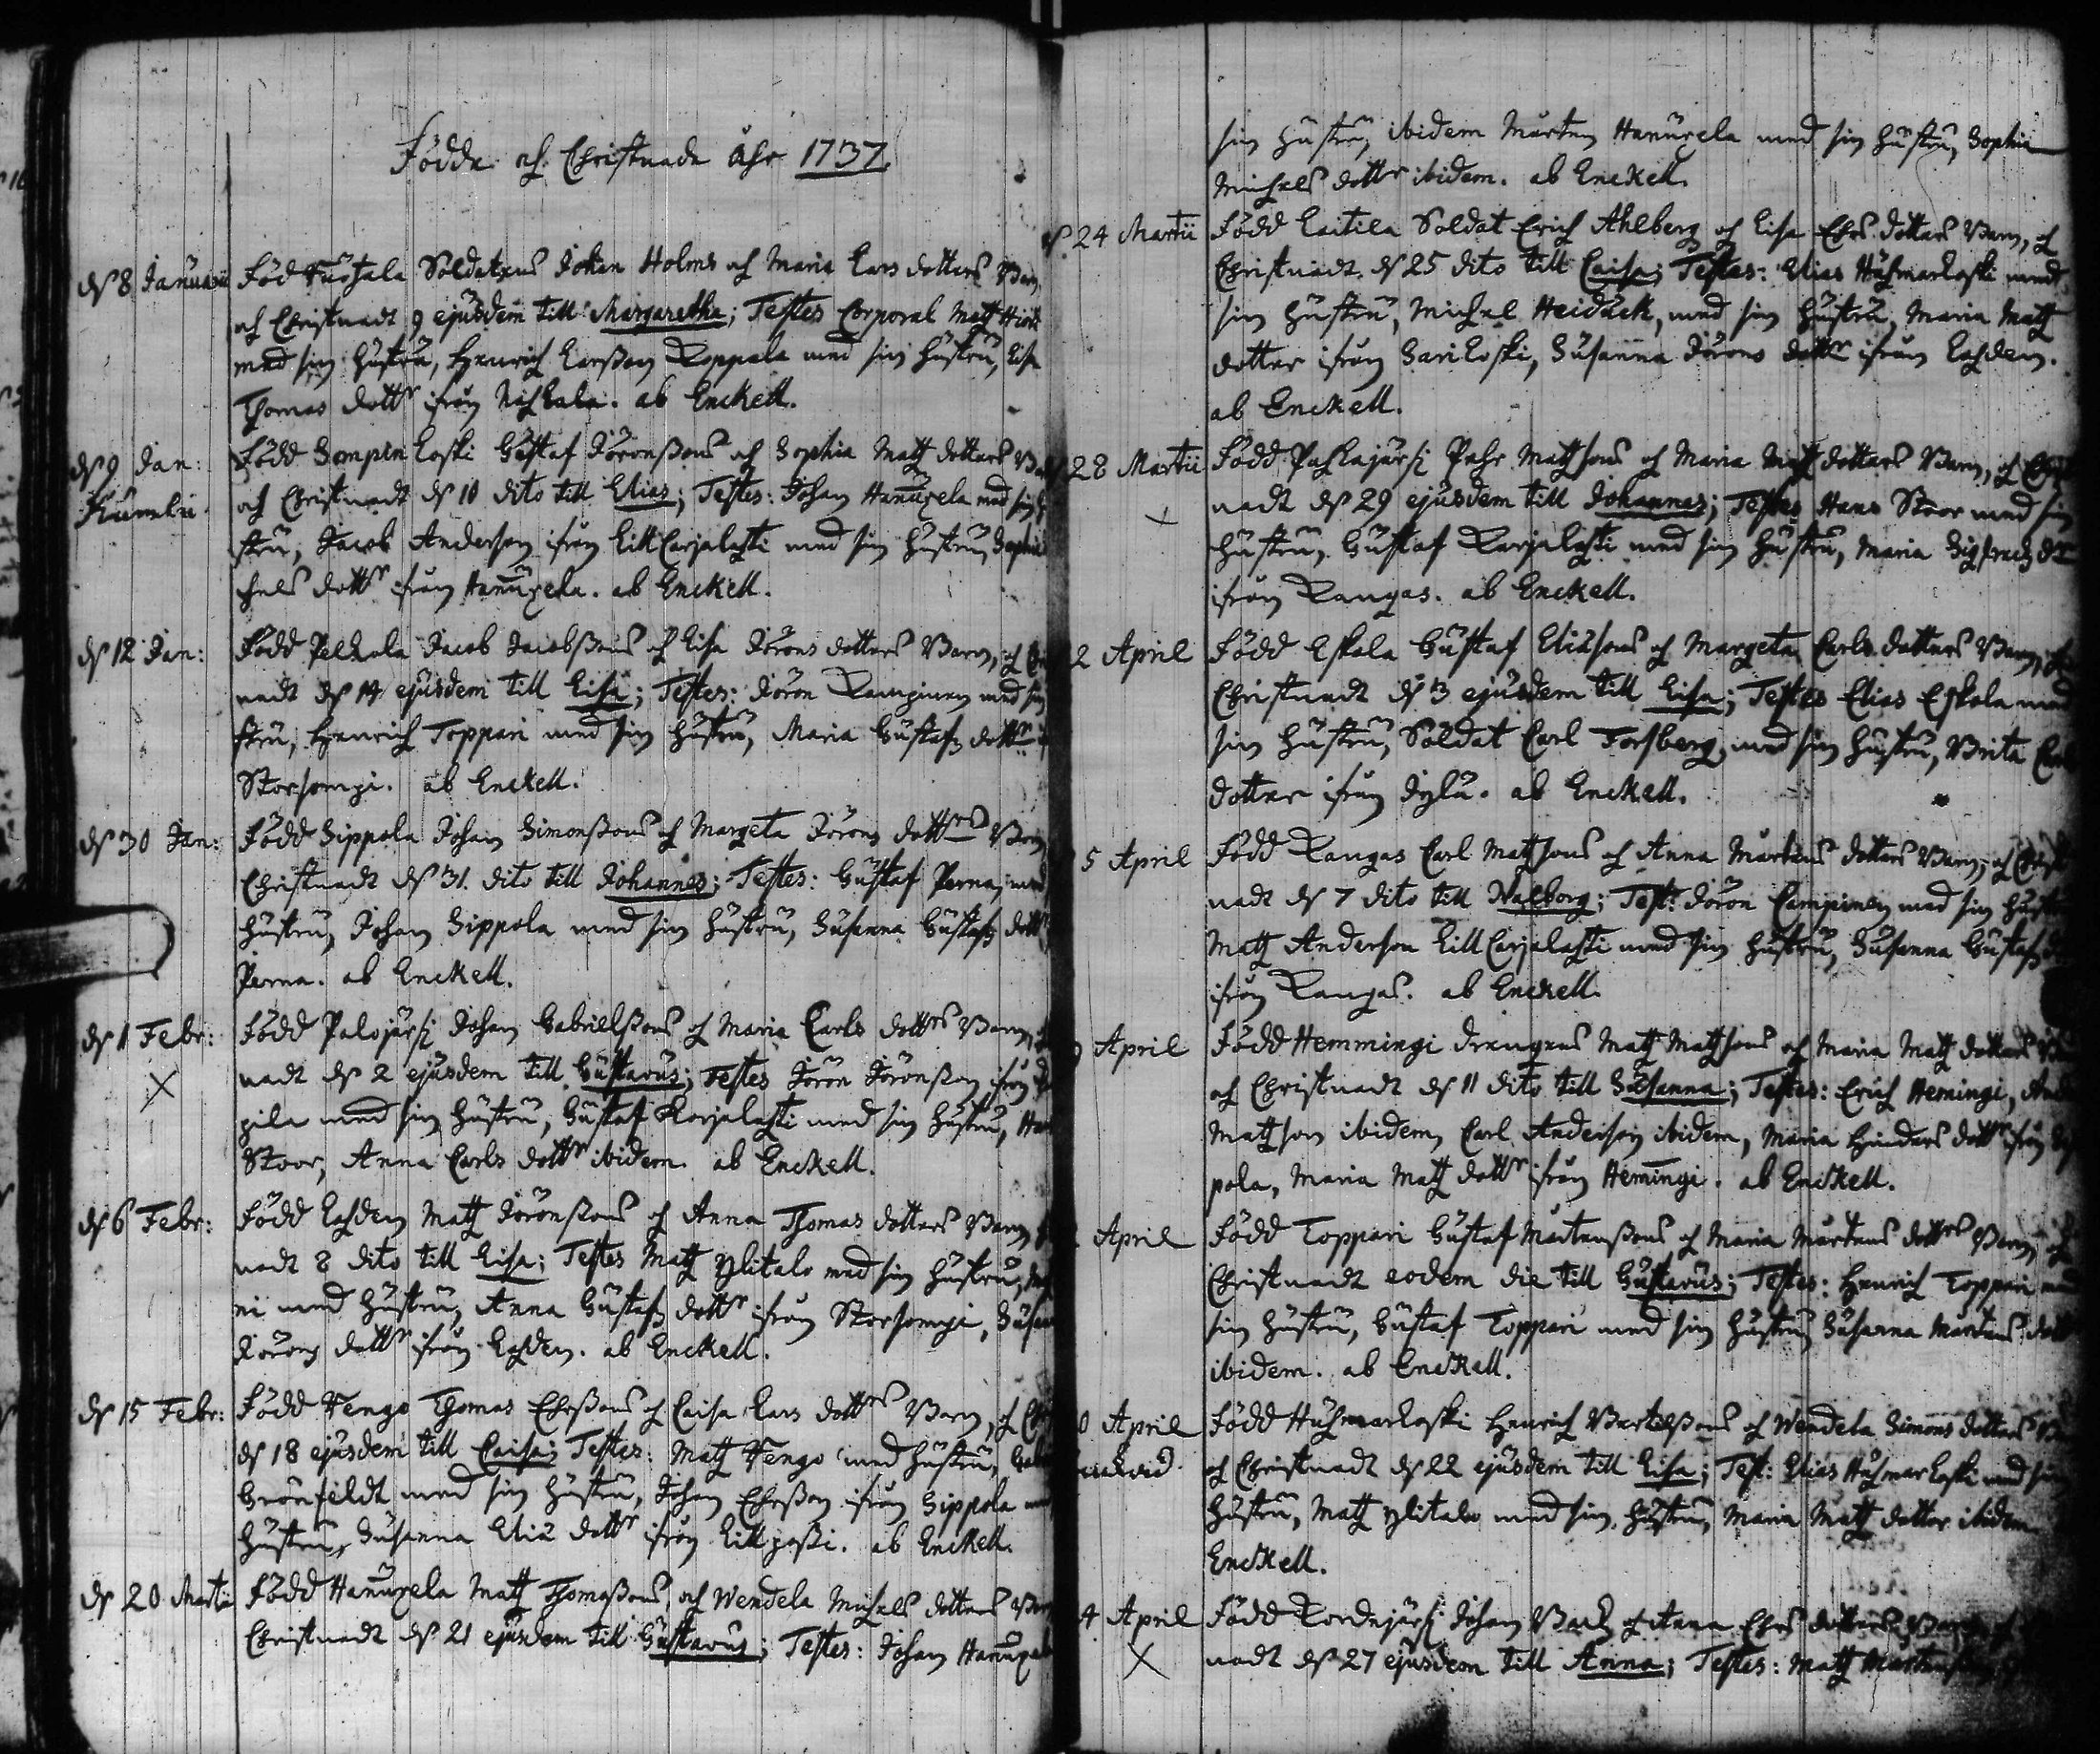 Födde och Christnade åhr 1737
d. 8 Januarii Född Suosala Soldatens Johan Holms och Maria Lars dotters Barn,
och Christnadt 9 ejusdem till Margaretha; Testes Corporal Matz
med sin hustru, Henrich Larsson Koppala med sin hustru, Lisa
Thomas dottr ifrån ab Enckell.
d. 9 Jan: Född Sompin koski Gustaf Jöranssons och Sophia Matz dotters
Kumlin och Christnadt d. 10 dito till Elias; Testes: Johan Hanuxela med sin
stru, Jacob Anderson ifrån Lill Carjalahti med sin hustru, Sophia
chels dottr ifrån Hanuxela. ab Enckell.
d. 12 Jan: Född Pelkola Jacob Jacobssons och Lisa Jörans dotters Barn, och
nadt d. 14 ejusdem till Lisa; Testes: Jöran Kampinen med sin
stru, Henrich Toppari med sin hustru, Maria Gustafz dottr
Storsompi. ab Enckell.
d. 30 Jan: Född Sippola Johan Simonssons och Margeta Jörans dottrs Barn
Christnadt d. 31. dito till Johannes; Testes: Gustaf Perna, med
hustru, Johan Sippola med sin hustru, Susanna Gustafz dottr
Perna. ab Enckell.
d. 1 Febr: Född Palojärfj Johan Gabrielssons och Maria Carls dottrs Barn,
X nadt d. 2 ejusdem till Gustavus; Testes Jöran Jöransson ifrån
pila med sin hustru, Gustaf Korjalahti med sin hustru,
Stoor, Anna Carls dottr ibidem. ab Enckell.
d. 6 Febr: Född Lahden Matz Jöranssons och Anna Thomas dotters Barn
nadt 8 dito till Lisa; Testes Matz Ylitalo med sin hustru,
ni med hustru, Anna Gustafz dottr ifrån Storsompi,
Jörans dottr ifrån Lahden. ab Enckell.
d. 15 Febr: Född Tengo Thomas Ehrssons och Caisa Lars dottrs Barn, och
d. 18 ejusdem till Caisa; Testes: Matz Tengo med hustru,
Grönfeldt med sin hustru, Johan Ehrsson ifrån Sippola
hustru, Susanna Eliæ dottr ifrån Lillpessi. ab Enckell.
d. 20 Martii Född Hanuxela Matz Thomassons, och Wendela Michels dotters
Christnadt d. 21 ejusdem till Gustavus; Testes: Johan Hanuxela
sin hustru, ibidem Mårten Hanuxela med sin hustru, Sophia
Michels dottr ibidem. ab Enckell.
d. 24 Martii Född Laitila Soldat Erich Ahlberg och Lisa Ehrs dotters Barn, och
Christnadt d. 25 dito till Caisa; Testes: Elias Huhmarkoski med
sin hustru, Michel Heiduck, med sin hustru, Maria Matz
dotter ifrån Sarikoski, Susanna Jörans dottr ifrån Lahden.
ab Enckell.
28 Martii Född Pahkajärfj Pehr Matzsons och Maria Matz dotters Barn, och
X nadt d. 29 ejusdem till Johannes; Testes Hans Stoor med sin
hustru, Gustaf Karjalahti med sin hustru, Maria Sigfredz dr
ifrån Kangas. ab Enckell.
2 April Född Eskola Gustaf Eliæsons och Margeta Carls dotters Barn,
Christnadt d. 3 ejusdem till Lisa; Testes Elias Eskola med
sin hustru, Soldat Carl Forsberg med sin hustru, Brita
dotter ifrån ab Enckell.
5 April Född Kangas Carl Matzsons och Anna Mårtens dotters Barn, och
nadt d. 7 dito till Walborg; Test: Jöran Campinen med sin
Matz Anderson Lill Carjalahti med sin hustru, Susanna Gustafz
ifrån Kangas. ab Enckell.
April Född Hemmingi drengens Matz Matzsons och Maria Matz dotters
och Christnadt d. 11 dito till Susanna; Testes: Erich Hemingi,
Matzson ibidem, Carl Anderson ibidem, Maria Hindrs dottr ifrån
pola, Maria Matz dottr ifrån Hemingi. ab Enckell.
April Född Toppari Gustaf Mårtenssons och Maria Mårtens dottrs Barn,
Christnadt eodem die till Gustavus; Testes: Henrich Toppari med
sin hustru, Gustaf Toppari med sin hustru Susanna Mårtens dottr
ibidem. ab Enckell.
0 April Född Huhmarkoski Henrich Bertilssons och Wendela Simons dotters
och Christnadt d. 22 ejusdem till Lisa; Test: Elias Huhmarkoski med sin
hustru, Matz Ylitalo med sin hustru, Maria Matz dotter ibidem
Enckell.
4 April Född Kordejärfj Johan och Anna Ehrs dotters
X nadt d. 27 ejusdem till Anna; Testes: Matz